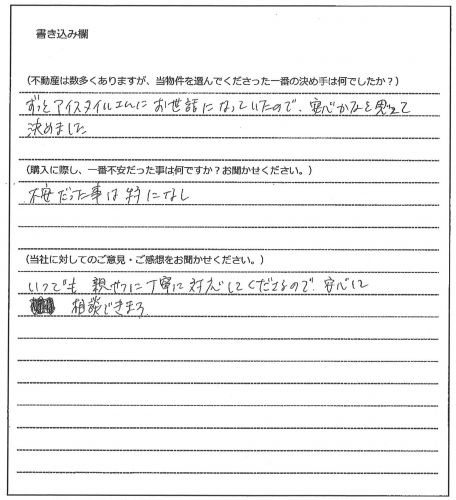 書き込み欄
(不動産は数多くありますが、当物件を選んでくださった一番の決め手は何でしたか?)
ずっとアイスタイルさんにお世話になっていたので、安心かなと思って
決めました
(購入に際し、一番不安だった事は何ですか?お聞かせください。)
不安だった事は特になし
(当社に対してのご意見・ご感想をお聞かせください。)
いつでも親切に丁寧に対応してくださるので、安心して
相談できます